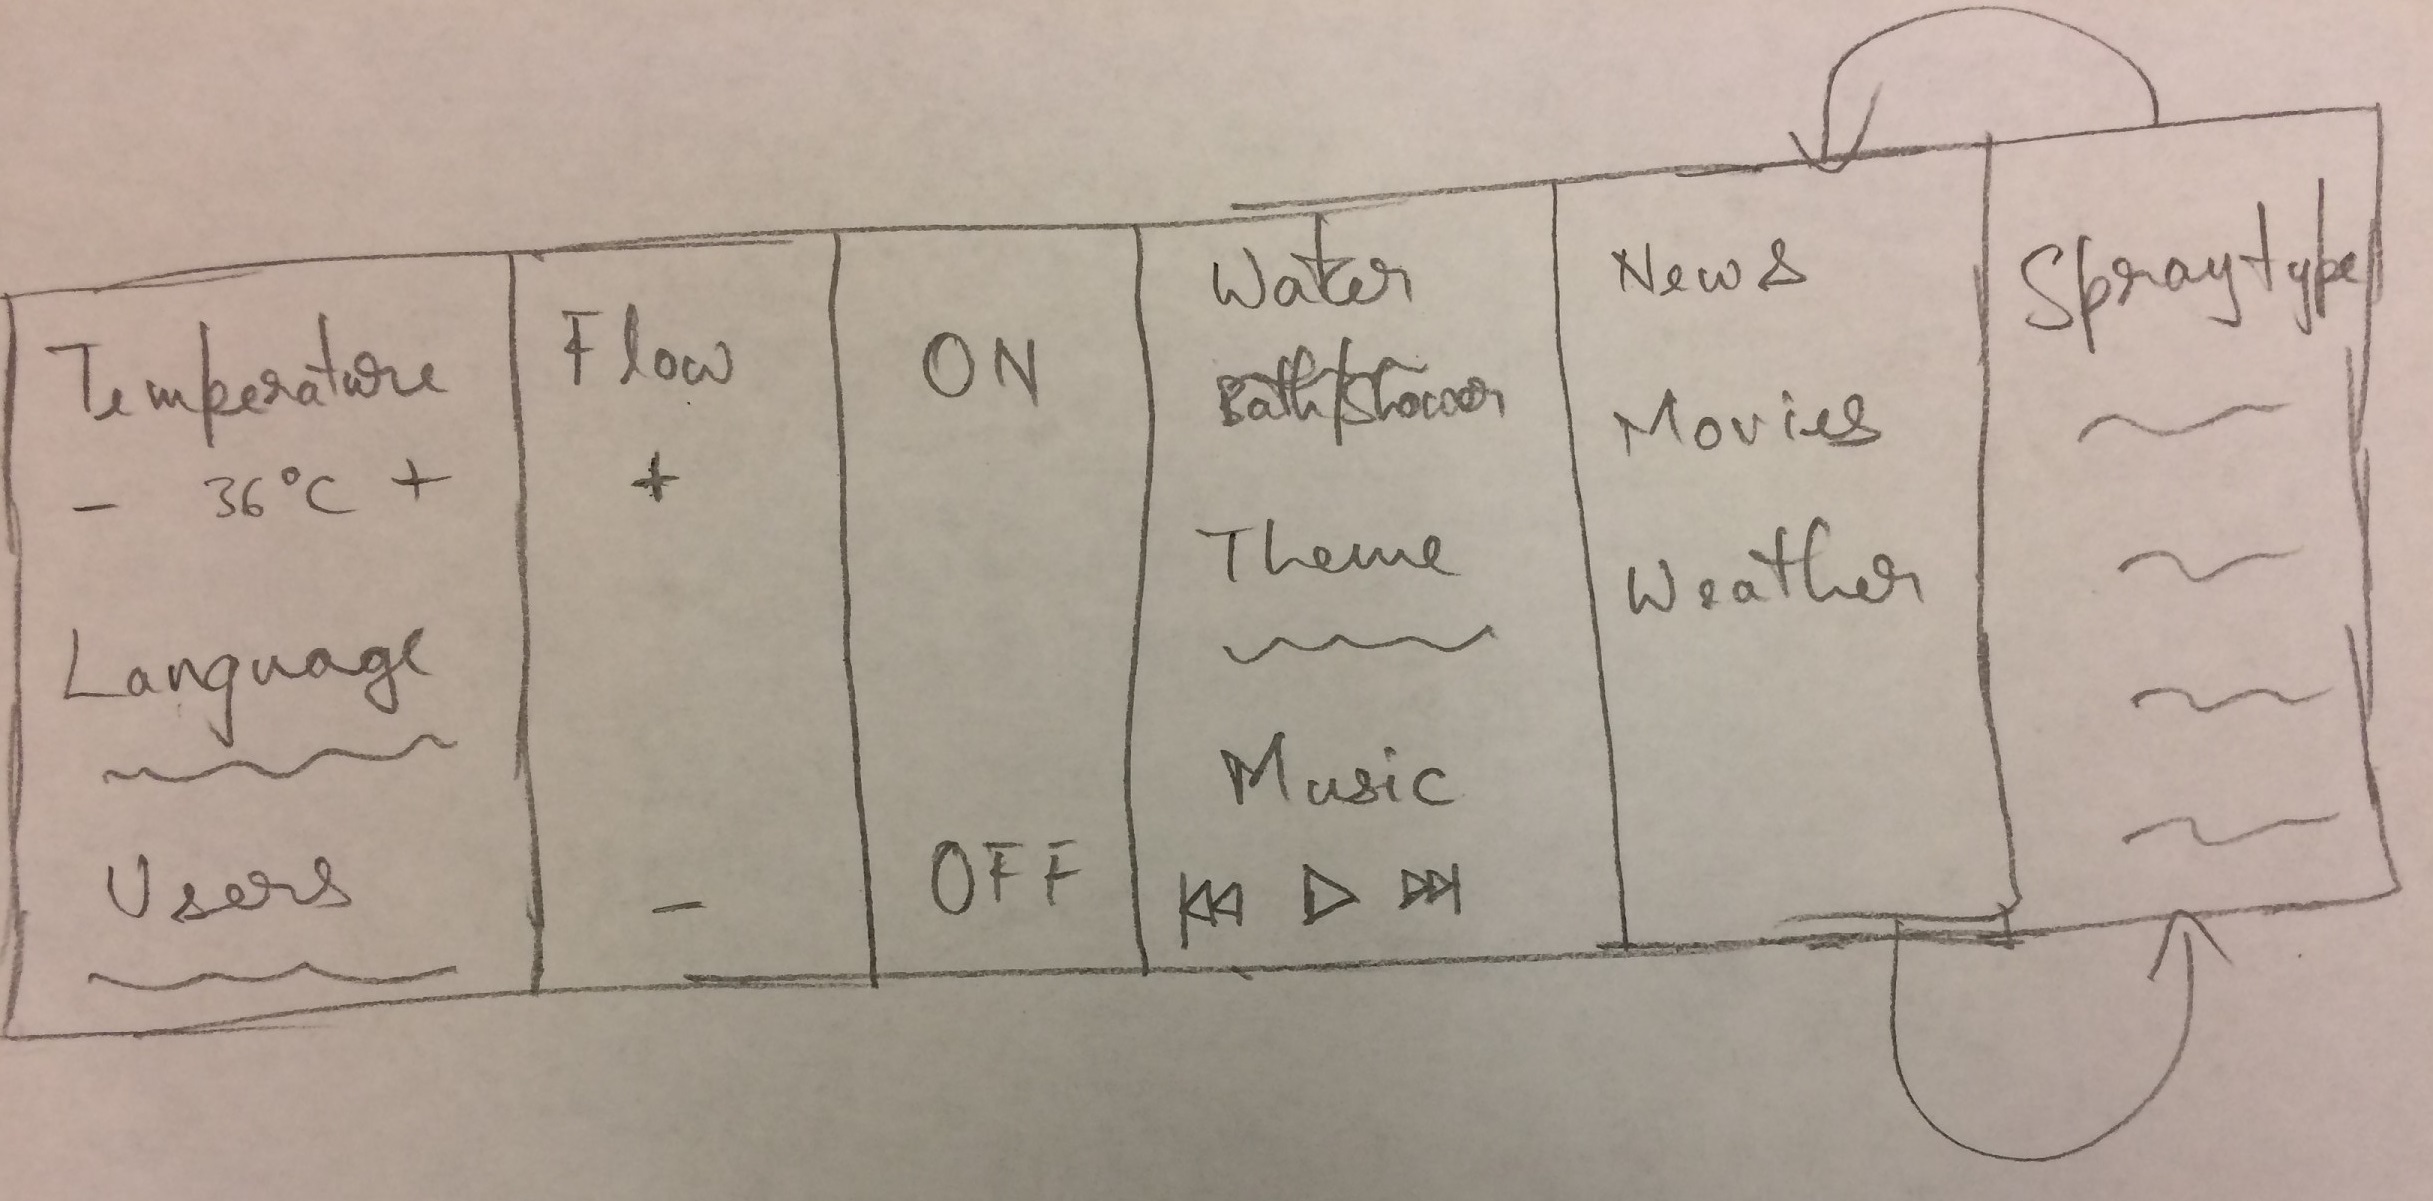 Temperature
- 36°C +
Language
Users
Flow
+
-
ON
OFF
Water
Bath/Shower
Theme
Music
News
Movies
Weather
Spray type